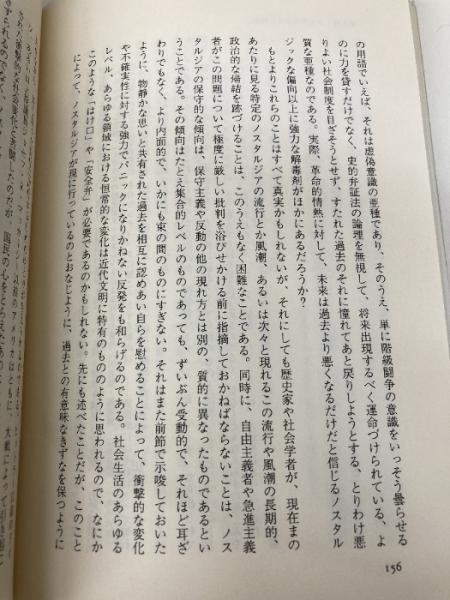 の用語でいえば、それは虚偽意識の亜種であり、そのうえ、単に階級闘争の意識をいっそう曇らせる
のに力を貸すだけでなく、史的弁証法の論理を無視して、将来出現するべく運命づけられている、よ
りよい社会制度を目ざそうとせず、すたれた過去のそれに憧れてあと戻りしようとする、とりわけ悪
質な亜種なのである。実際、革命的情熱に対して、未来は過去より悪くなるだけだと信じるノスタル
ジックな偏向以上に強力な解毒剤がほかにあるだろうか?
もとよりこれらのことはすべて真実かもしれないが、それにしても歴史家や社会学者が、現在まの
あたりに見る特定のノスタルジアの流行とか風潮、あるいは次々と現れるこの流行や風潮の長期的、
政治的な帰結を跡づけることは、このうえもなく困難なことである。同時に、自由主義者や急進主義
者がこの問題について極度に厳しい批判を浴びせかける前に指摘しておかねばならないことは、ノス
タルジアの保守的な傾向は、保守主義や反動の他の現れ方とは別の、質的に異なったものであるとい
うことである。その傾向はたとえ集合的レベルのものであっても、ずいぶん受動的で、それほど耳ざ
わりでもなく、より内面的で、いかにも束の間のものにすぎない。それはまた前節で示唆しておいた
ように、物静かな思いと共有された過去を相互に認めあい自らを慰めることによって、衝撃的な変化
や不確実性に対する強力でパニックになりかねない反発をも和らげるのである。社会生活のあらゆる
レベル、あらゆる領域における恒常的な変化は近代文明に特有のもののように思われるので、なにか
このような「はけ口」や「安全弁」が必要であるのかもしれない。先にも述べたことだが、このこと
によって、ノスタルジアが現に行っているのとおなじように、過去との有意味なきずなを保つように
156